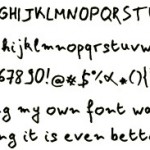 GHIJKLMNOPQRSTU
ghijklmnopqrstuvw
67890!@*$%^*(){
my own font
it is even